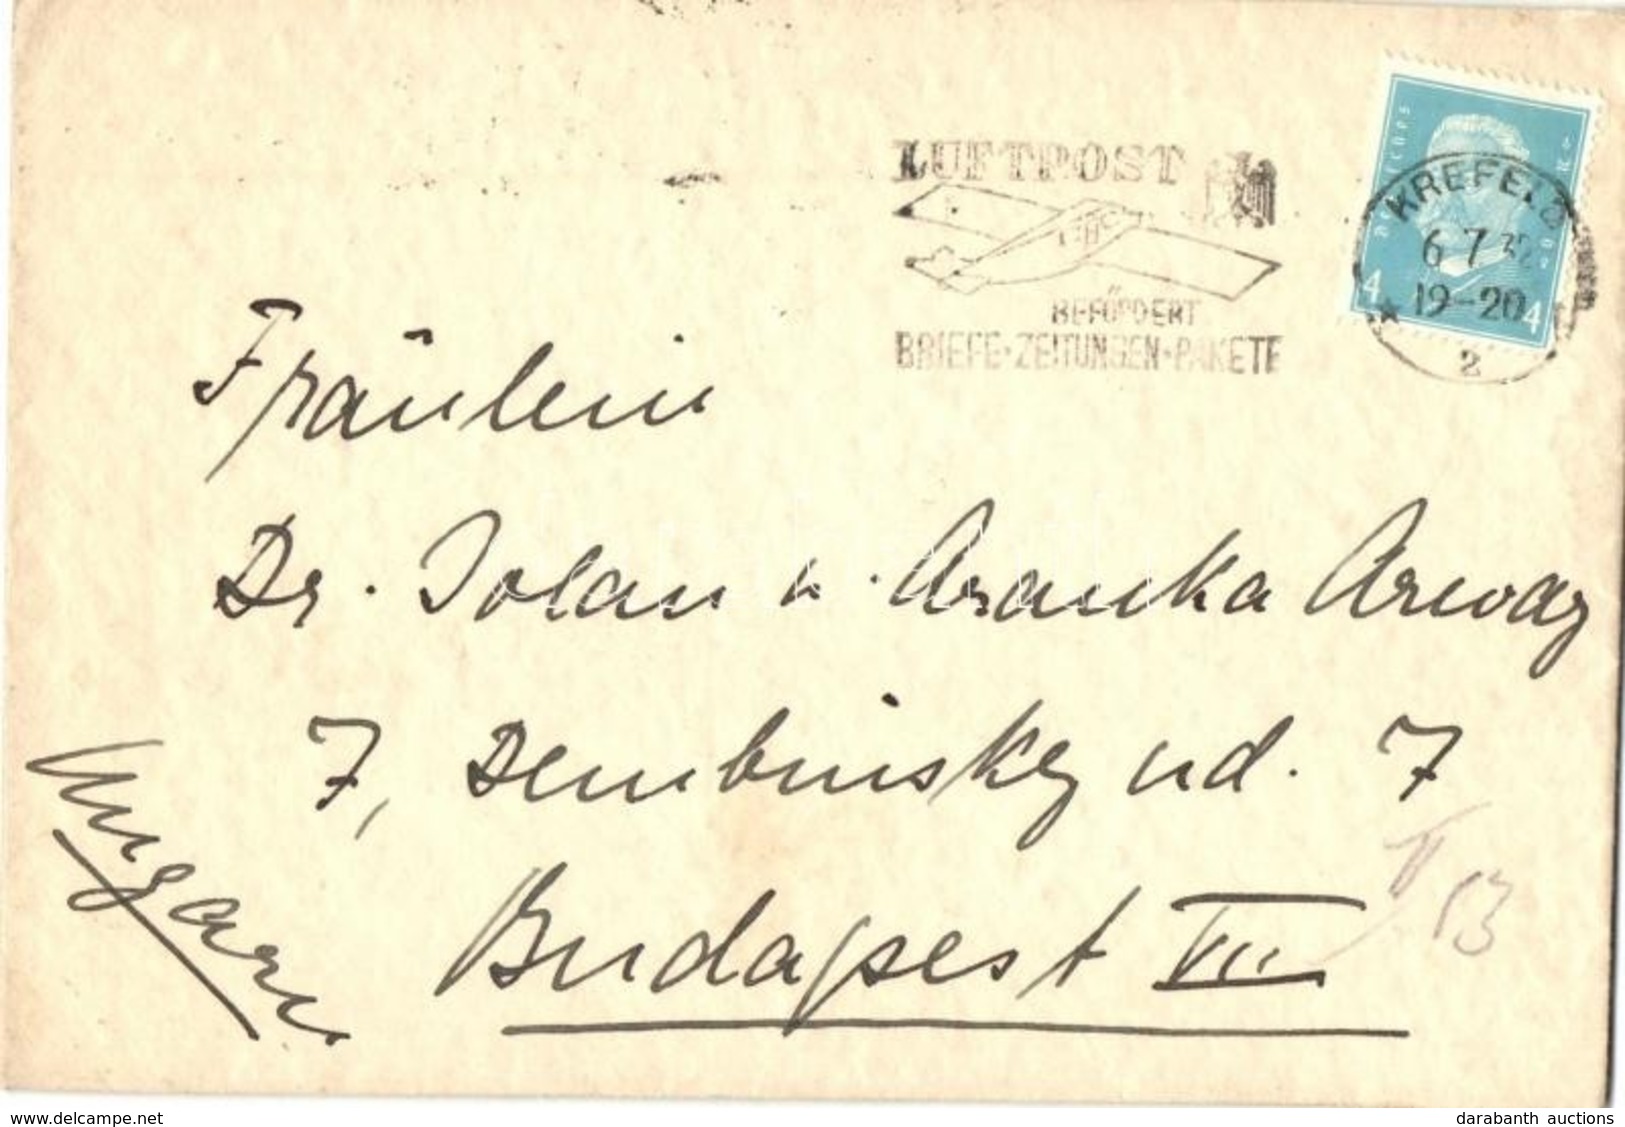 LUFTPOST
BEFÖRDERT
BRIEFE·ZEITUNGEN·PAKETE
KREFELD
6 7 32
19-20
2
4 4
Fräulein
Dr. Jolan u. Aranka Arway
7, Dembinsky ud. 7
Budapest VII
Ungarn
II 13
www.delcampe.net
darabanth auctions